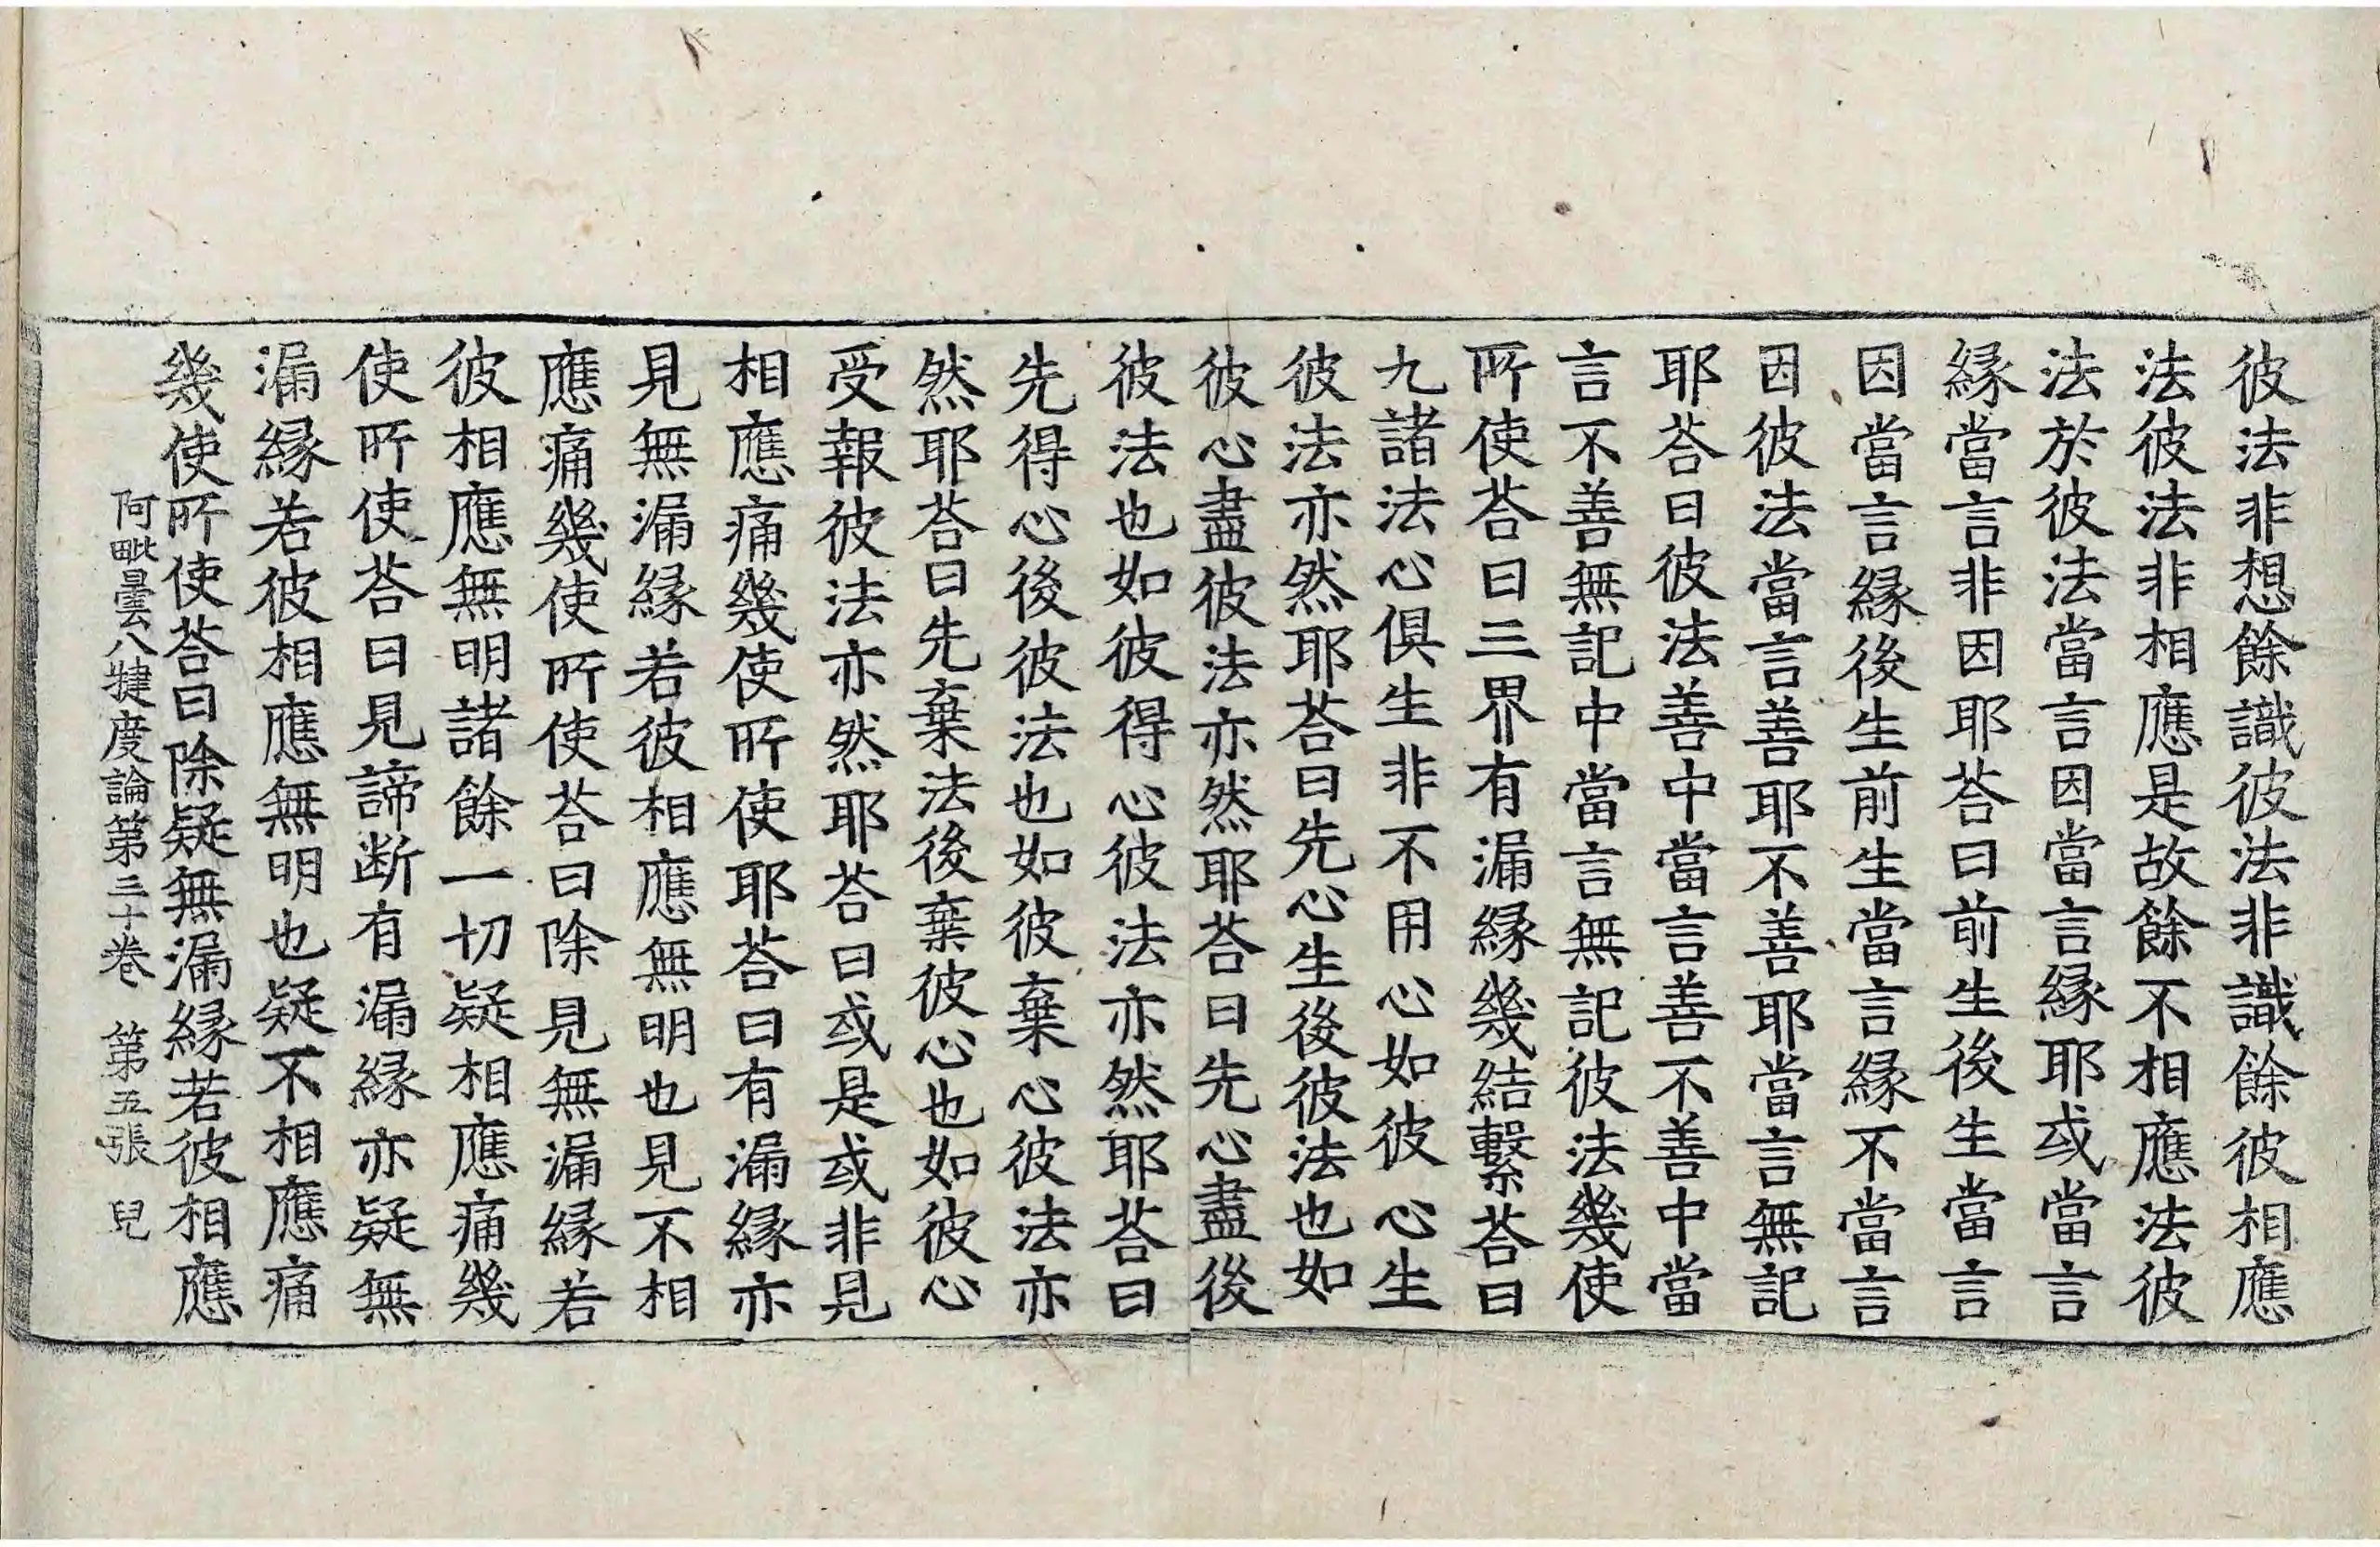 彼法非想餘識彼法非識餘彼相應
法彼法非相應是故餘不相應法彼
法於彼法當言因當言緣耶或當言
緣當言非因耶荅曰前生後生當言
因當言緣後生前生當言緣不當言
因彼法當言善耶不善耶當言無記
耶荅曰彼法善中當言善不善中當
言不善無記中當言無記彼法幾使
所使荅曰三界有漏緣幾結繫荅曰
九諸法心俱生非不用心如彼心生
彼法亦然耶荅曰先心生後彼法也如
彼心盡彼法亦然耶荅曰先心盡後
彼法也如彼得心彼法亦然耶荅曰
先得心後彼法也如彼棄心彼法亦
然耶荅曰先棄法後棄彼心也如彼心
受報彼法亦然耶荅曰或是或非見
相應痛幾使所使耶荅曰有漏緣亦
見無漏緣若彼相應無明也見不相
應痛幾使所使荅曰除見無漏緣若
彼相應無明諸餘一切疑相應痛幾
使所使荅曰見諦断有漏緣亦疑無
漏緣若彼相應無明也疑不相應痛
幾使所使荅曰除疑無漏緣若彼相應
阿毗曇八犍度論第三十卷 第五張 兒